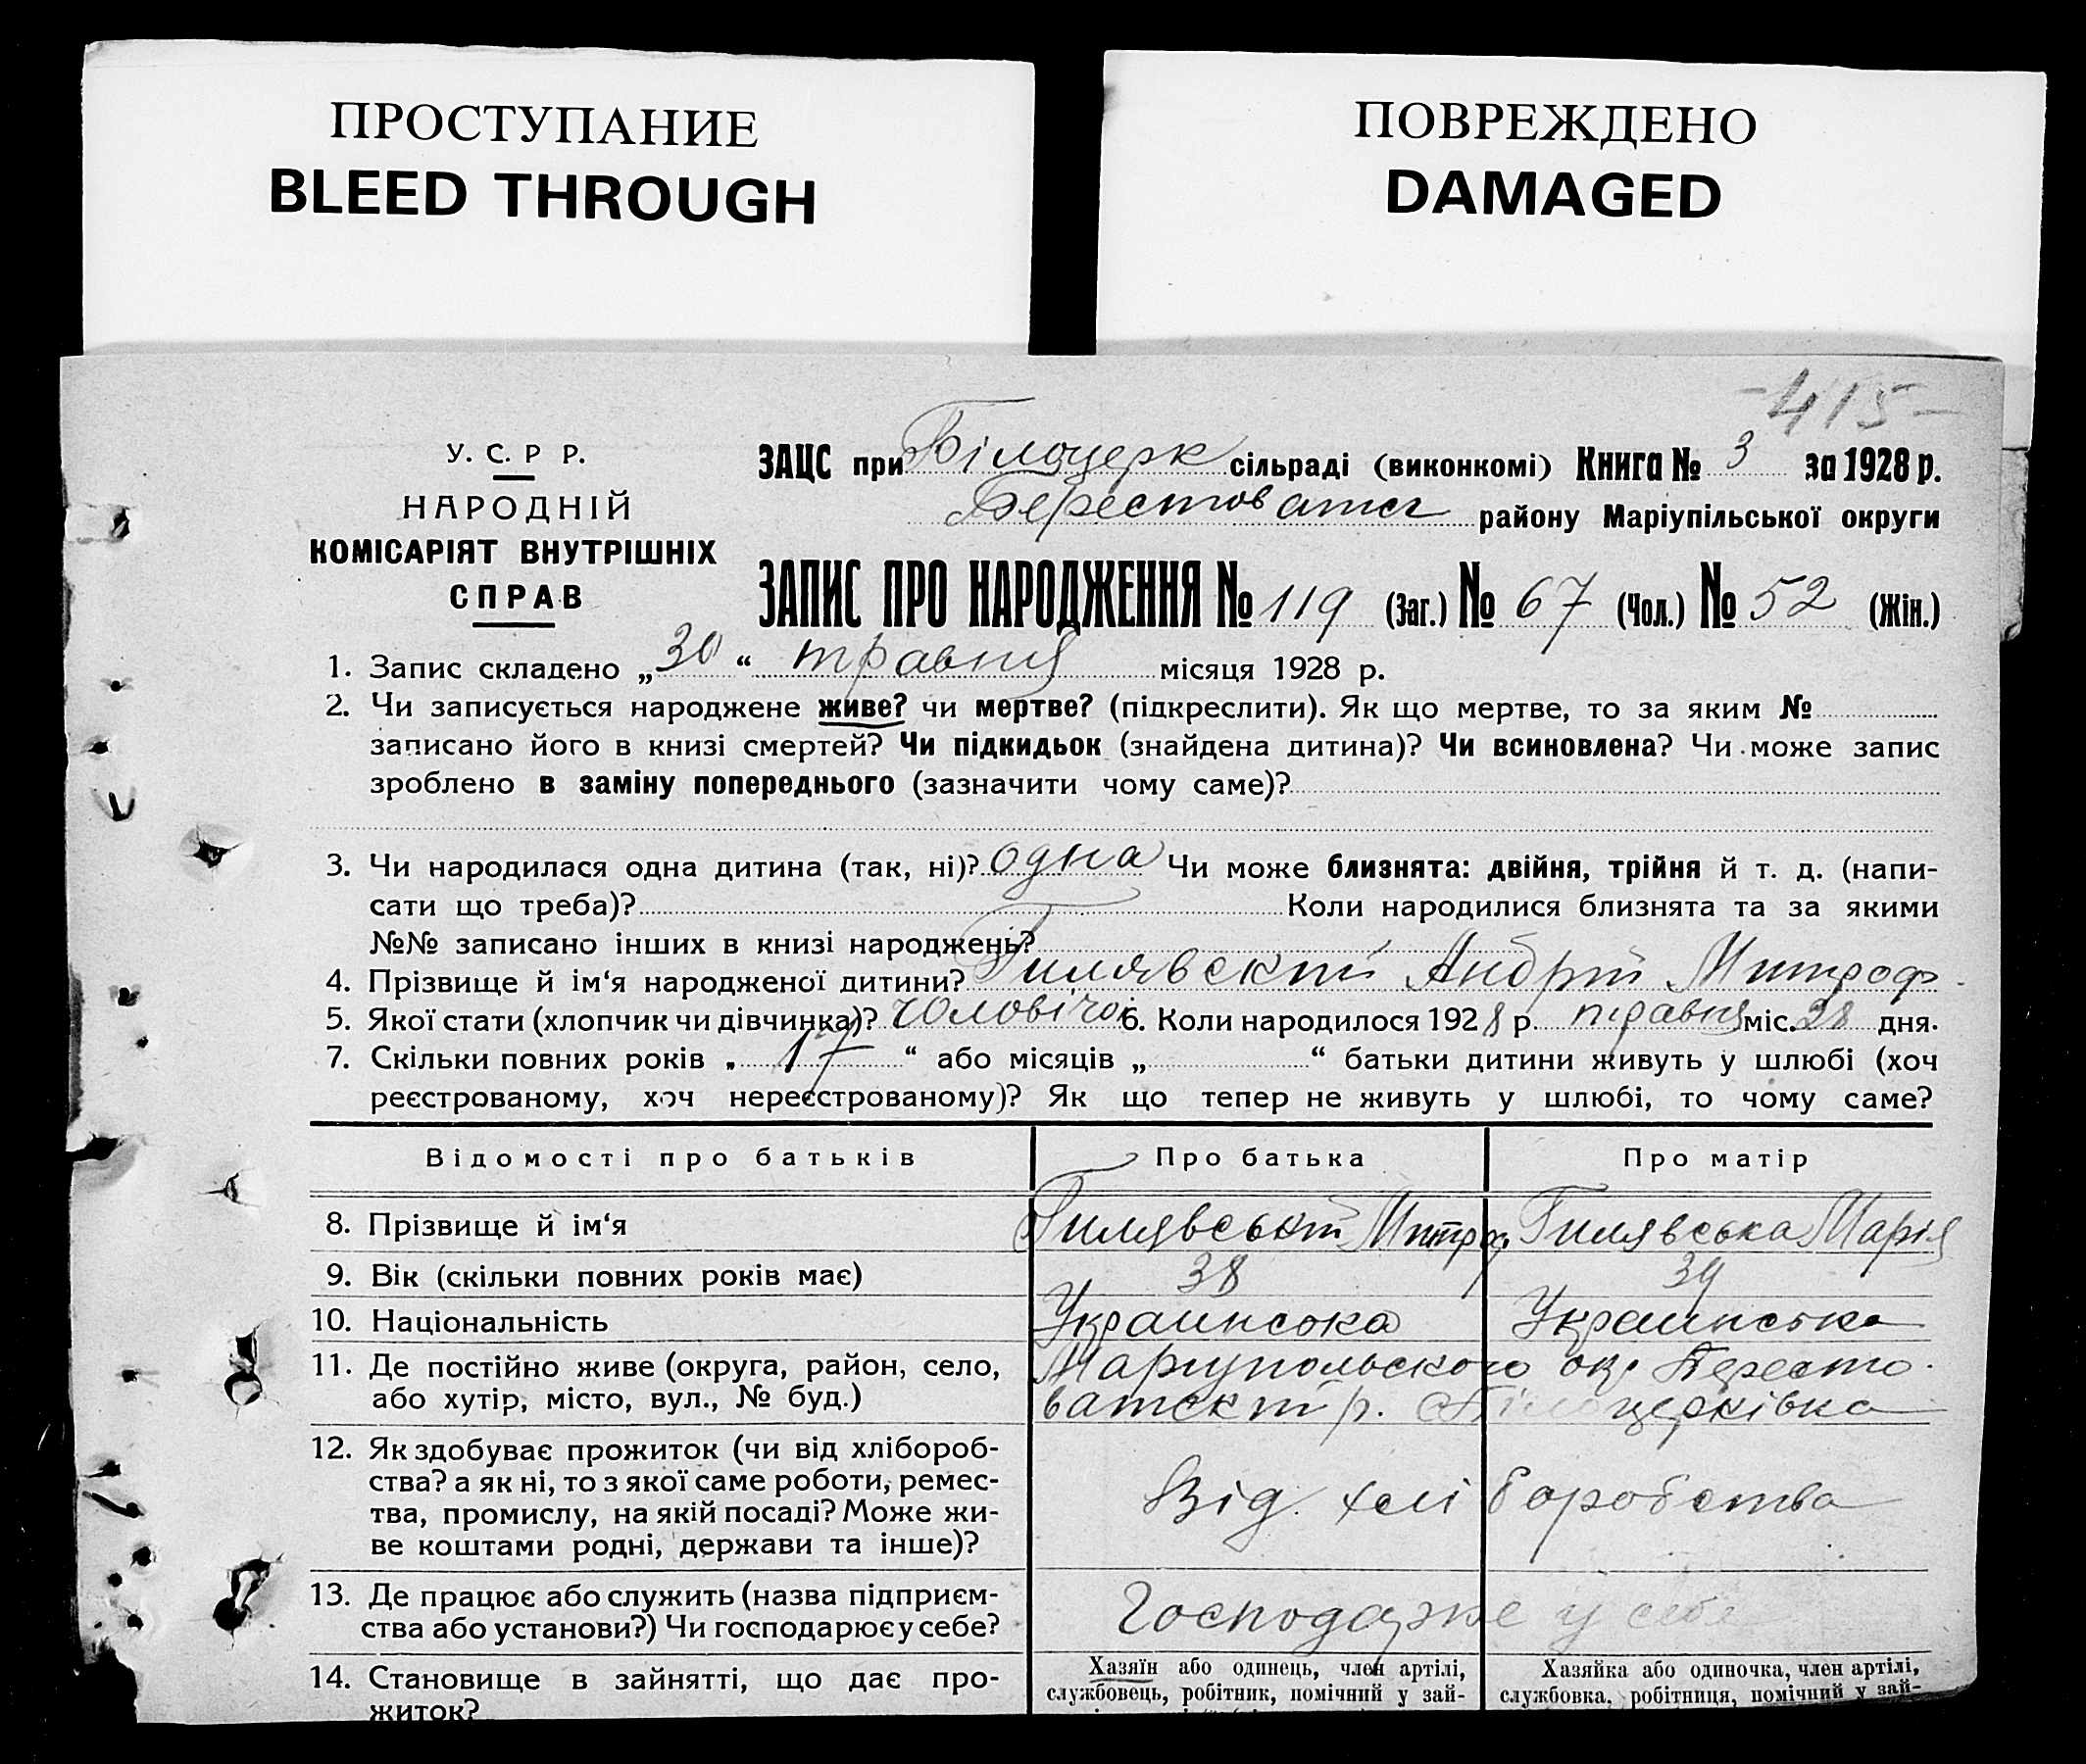 ПРОСТУПАНИЕ
BLEED THROUGH
ПОВРЕЖДЕНО
DAMAGED
-415-
У. С. Р Р.
НАРОДНІЙ
КОМІСАРІЯТ ВНУТРІШНІХ
СПРАВ
ЗАЦС при Білоцерк сільраді (виконкомі) Книга № 3 за 1928 р.
Берестоватсг району Маріупільської округи
ЗАПИС ПРО НАРОДЖЕННЯ № 119 (Заг.) № 67 (Чол.) № 52 (Жін.)
1. Запис складено „30“ травня місяця 1928 р.
2. Чи записується народжене живе? чи мертве? (підкреслити). Як що мертве, то за яким №
записано його в книзі смертей? Чи підкидьок (знайдена дитина)? Чи всиновлена? Чи може запис
зроблено в заміну попереднього (зазначити чому саме)?
3. Чи народилася одна дитина (так, ні)? одна Чи може близнята: двійня, трійня й т. д. (напи-
сати що треба)? Коли народилися близнята та за якими
№№ записано інших в книзі народжень?
4. Прізвище й ім‘я народженої дитини? Гилявскій Андрій Митроф.
5. Якої стати (хлопчик чи дівчинка)? чоловічої 6. Коли народилося 1928 р. травня міс. 28 дня.
7. Скільки повних років „17“ або місяців „ “ батьки дитини живуть у шлюбі (хоч
реєстрованому, хоч нереєстрованому)? Як що тепер не живуть у шлюбі, то чому саме?
Відомості про батьків Про батька Про матір
8. Прізвище й ім‘я Гилявській Митроф. Гилявська Марія
9. Вік (скільки повних років має) 38 39
10. Національність Украинсока Украинська
11. Де постійно живе (округа, район, село, Мариупольского окр Бересто-
або хутір, місто, вул., № буд.) ватскій р. с Білоцерківка
12. Як здобуває прожиток (чи від хлібороб-
ства? а як ні, то з якої саме роботи, ремес-
тва, промислу, на якій посаді? Може жи- Від хліборобства
ве коштами родні, держави та інше)?
13. Де працює або служить (назва підприєм-
ства або установи?) Чи господарює у себе? у себе
14. Становище в зайнятті, що дає про- Хазяїн або одинець, член артілі, Хазяйка або одиночка, член артілі,
житок? службовець, робітник, помічний у зай- службовка, робітниця, помічний у зай-